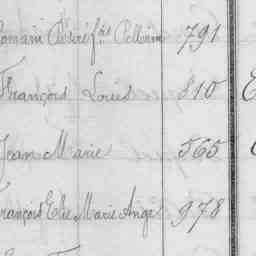 Romain Désiré fils Pellerin 791
François Louis 810
Jean Marie 565
François Elie Marie Ange 978